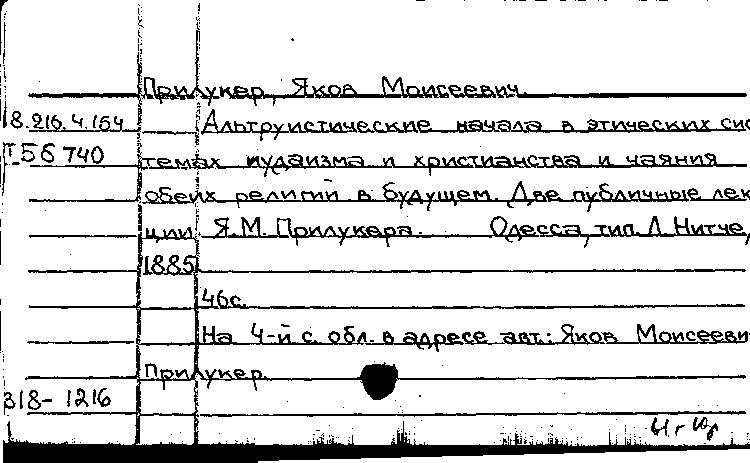 Прилукер, Яков Моисеевич.
18.216.4.154 Альтруистические начала в этических сис
Т-56 740 темах иудаизма и христианства и чаяния
обеих религий в будущем. Две публичные лек
ции Я.М. Прилукера. Одесса, тип. Л. Нитче,
1885
46с.
На 4-й с. обл. в адресе авт.: Яков Моисееви
Прилукер.
318-1216